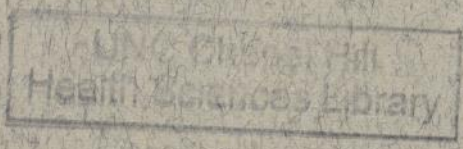 UNC Chapel Hill
Health Sciences Library